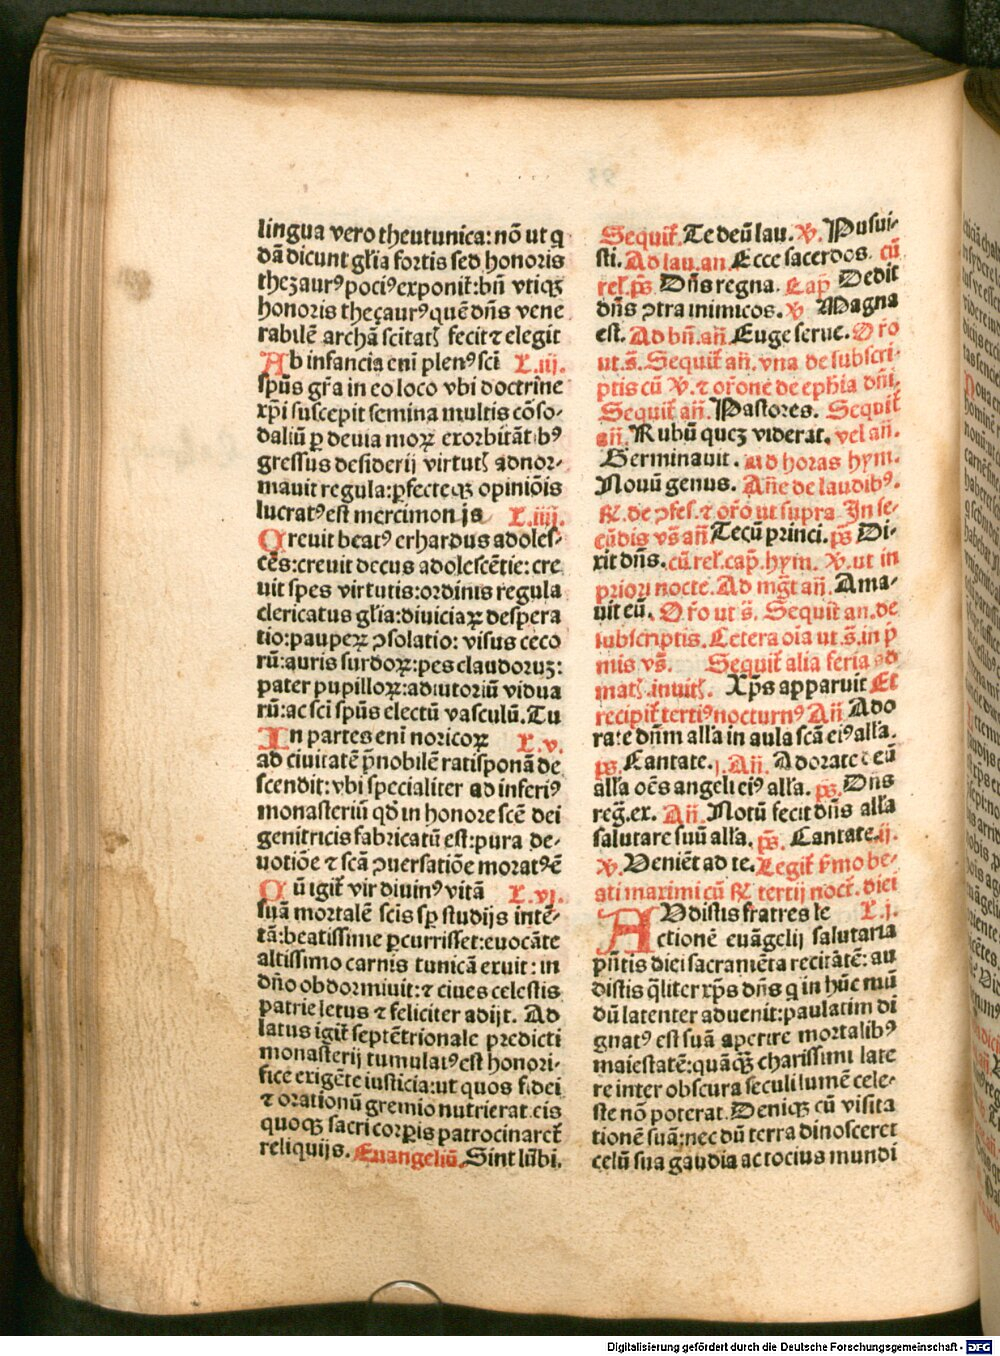 lingua vero theutunica: nō ut q
dā dicunt gľia fortis sed honoris
thezaurꝰ pociꝰ exponit̃: bñ vtiqꝫ
honoris theçaurꝰ quē dñs vene
rabilē archā scitatꝭ fecit ⁊ elegit
Ab infancia eni plenꝰ sci L.iij.
spūs gr̄a in eo loco vbi doctrine
xp̄i suscepit semina multis cōso-
daliū ꝑ deuia moꝝ exorbitātibꝰ
gressus desiderij virtutꝭ adnor-
mauit regula: ꝑfecteqꝫ opiniōis
lucratꝰ est mercimonijs L.iiij.
Creuit beatꝰ erhardus adoles-
cēs: creuit decus adolescētie: cre
uit spes virtutis: ordinis regula
clericatus gľia: diuiciaꝝ despera
tio: pauꝑeꝝ ↄsolatio: visus ceco
rū: auris surdoꝝ: pes claudoruꝫ:
pater pupilloꝝ: adiutoriū vidua
rū: ac sci spūs electū vasculū. Tu
In partes eni noricoꝝ L.v.
ad ciuitatē p̄nobilē ratisponā de
scendit: vbi specialiter ad inferiꝰ
monasteriū qd̄ in honore scē dei
genitricis fabricatū est: pura de-
uotiōe ⁊ scā ↄuersatiōe moratꝰ ē
Cū igit̃ vir diuinꝰ vitā L.vj.
suā mortalē scis sꝑ studijs intē-
tā: beatissime ꝑcurrisset: euocāte
altissimo carnis tunicā exuit: in
dño obdormiuit: ⁊ ciues celestis
patrie letus ⁊ feliciter adijt. Ad
latus igit̃ septētrionale predicti
monasterij tumulatꝰ est honori-
fice exigēte iusticia: ut quos fidei
⁊ orationū gremio nutrierat eis
quoqꝫ sacri corꝑis patrocinaret̃
reliquijs. Euangeliū. Sint lūbi.
Sequit̃. Te deū lau. ꝟ. Posui-
sti. Ad lau. an. Ecce sacerdos. cū
rel̃. ps̄. Dñs regna. Cap̃ Dedit
dñs ↄtra inimicos. ꝟ Magna
est. Ad bñ. añ. Euge serue. Oro
ut s̄. Sequit̃ añ. vna de subscri-
ptis cū ꝟ. ⁊ or̄one de eph̄ia dñi.
Sequit̃ añ. Pastores. Sequit̃
añ. Rubū queꝫ viderat. vel añ.
Germinauit. ad horas hym.
Nouū genus. Añe de laudibꝰ.
℟. de ↄfes. ⁊ or̄o ut supra. In se-
cūdis vs̄ añ Tecū princi. ps̄ Di-
xit dñs. cū rel̃. cap̃. hym. ꝟ. ut in
priori nocte. Ad mg̃t añ. Ama-
uit eū. Or̄o ut s̄. Sequit̃ an. de
subscriptis. Cetera oīa ut s̄. in p̄
mis vs̄. Sequit̃ alia feria ad
matꝭ. inuitꝭ. Xp̄s apparuit Et
recipit̃ tertiꝰ nocturnꝰ Añ Ado
rate dñm alľa in aula scā eiꝰ alľa.
ps̄. Cantate. j. Añ. Adorate deū
alľa oēs angeli eiꝰ alľa. ps̄. Dñs
reg̃. ex. Añ. Notū fecit dñs alľa
salutare suū alľa. ps̄. Cantate. ij.
ꝟ. Veniēt ad te. Legit̃ ẜmo be-
ati maximi cū ℟ tertij noct̃. diei
AUdistis fratres le L.j.
ctionē euāgelij salutaria
pñtis diei sacramēta recitātē: au
distis q̄liter xp̄s dñs q in hūc mū
dū latenter aduenit: paulatim di
gnatꝰ est suā aperire mortalibꝰ
maiestatē: quāqꝫ charissimi late
re inter obscura seculi lumē cele-
ste nō poterat. Deniqꝫ cū visita
tionē suā: nec dū terra dinosceret
celū sua gaudia ac tocius mundi
Digitalisierung gefördert durch die Deutsche Forschungsgemeinschaft - DFG